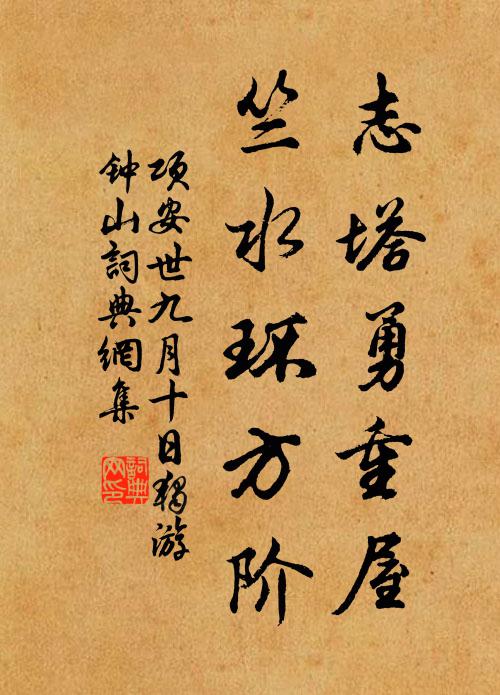 志塔勇重屋
竺水环方阶
项安世九月十日獨游
钟山詞典網集
詞典
网印